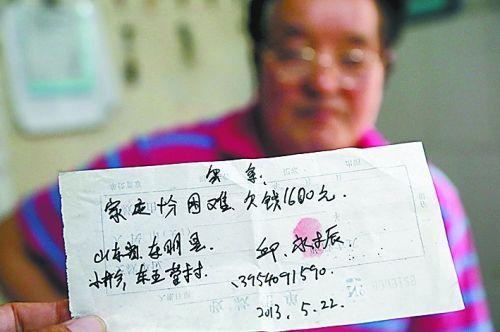 欠条.
家庭十分困难.欠钱1600元.
山东省.东明县
小井乡,东 营村.
邱
13954091590.
2013.5.22.